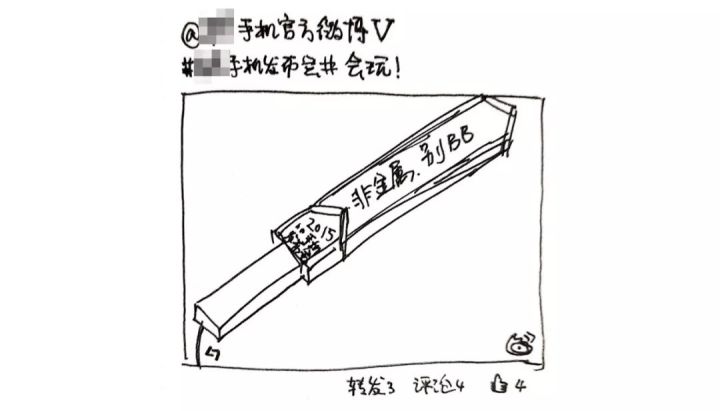 @手机官方微博V
#手机发布会# 会玩!
非金属.别BB
2015
转发3 评论4 4